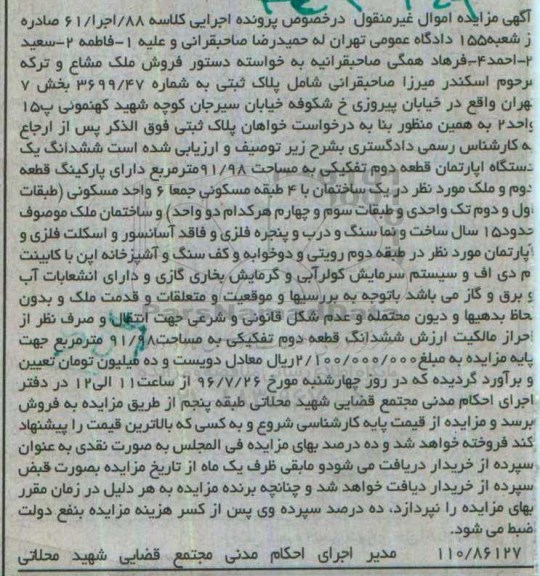 آگهی مزایده اموال غیرمنقول درخصوص پرونده اجرایی کلاسه ۸۸/اجرا/۶۱ صادره
ز شعبه۱۵۵ دادگاه عمومی تهران له حمیدرضا صاحبقرانی و علیه ۱-فاطمه ۲-سعید
۳-احمد۴-فرهاد همگی صاحبقرانیه به خواسته دستور فروش ملک مشاع و ترکه
مرحوم اسکندر میرزا صاحبقرانی شامل پلاک ثبتی به شماره ۳۶۹۹/۴۷ بخش ۷
تهران واقع در خیابان پیروزی خ شکوفه خیابان سیرجان کوچه شهید کهنمونی پ۱۵
واحد۲ به همین منظور بنا به درخواست خواهان پلاک ثبتی فوق الذکر پس از ارجاع
به کارشناس رسمی دادگستری بشرح زیر توصیف و ارزیابی شده است ششدانگ یک
دستگاه اپارتمان قطعه دوم تفکیکی به مساحت ۹۱/۹۸مترمربع دارای پارکینگ قطعه
دوم و ملک مورد نظر در یک ساختمان با ۴ طبقه مسکونی جمعا ۶ واحد مسکونی (طبقات
اول و دوم تک واحدی و طبقات سوم و چهارم هرکدام دو واحد) و ساختمان ملک موصوف
حدود۱۵ سال ساخت و نما سنگ و درب و پنجره فلزی و فاقد آسانسور و اسکلت فلزی و
آپارتمان مورد نظر در طبقه دوم رویتی و دوخوابه و کف سنگ و آشپزخانه اپن با کابینت
ام دی اف و سیستم سرمایش کولرآبی و گرمایش بخاری گازی و دارای انشعابات آب
و برق و گاز می باشد باتوجه به بررسیها و موقعیت و متعلقات و قدمت ملک و بدون
لحاظ بدهیها و دیون محتمله و عدم شکل قانونی و شرعی جهت انتقال و صرف نظر از
احراز مالکیت ارزش ششدانگ قطعه دوم تفکیکی به مساحت۹۱/۹۸ مترمربع جهت
پایه مزایده به مبلغ۲/۱۰۰/۰۰۰/۰۰۰ریال معادل دویست و ده میلیون تومان تعیین
و برآورد گردیده که در روز چهارشنبه مورخ ۹۶/۷/۲۶ از ساعت۱۱ الی۱۲ در دفتر
اجرای احکام مدنی مجتمع قضایی شهید محلاتی طبقه پنجم از طریق مزایده به فروش
برسد و مزایده از قیمت پایه کارشناسی شروع و به کسی که بالاترین قیمت را پیشنهاد
کند فروخته خواهد شد و ده درصد بهای مزایده فی المجلس به صورت نقدی به عنوان
سپرده از خریدار دریافت می شودو مابقی ظرف یک ماه از تاریخ مزایده بصورت قبض
سپرده از خریدار دیافت خواهد شد و چنانچه برنده مزایده به هر دلیل در زمان مقرر
بهای مزایده را نپردازد، ده درصد سپرده وی پس از کسر هزینه مزایده بنفع دولت
ضبط می شود.
۱۱۰/۸۶۱۲۷ مدیر اجرای احکام مدنی مجتمع قضایی شهید محلاتی